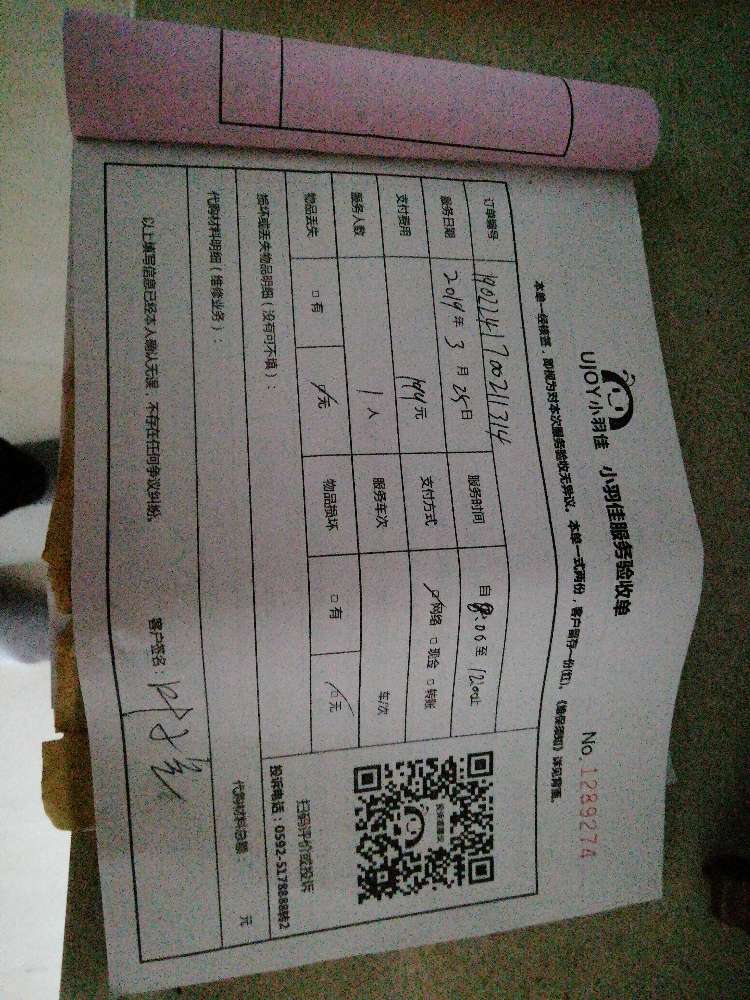 UJOY小羽佳 小羽佳服务验收单
No.1289274
本单一经核签，即视为对本次服务验收无异议。本单一式两份，客户留存一份(红)。《维保须知》详见背面。
订单编号 190224170021​1314
服务时间 自 8:06 至 12:00止
服务日期 2019年 3月 25日
支付方式 ☑网络 □现金 □转账
支付费用 元
服务人数 1人
服务车次 车/次
物品丢失 □有 ☑无
物品损坏 □有 ☑无
损坏或丢失物品明细（没有可不填）：
代购材料明细（维修业务）：
代购材料总额： 元
以上填写信息已经本人确认无误，不存在任何争议纠纷。
客户签名：
扫码评价或投诉
投诉电话：0592-5178888转2